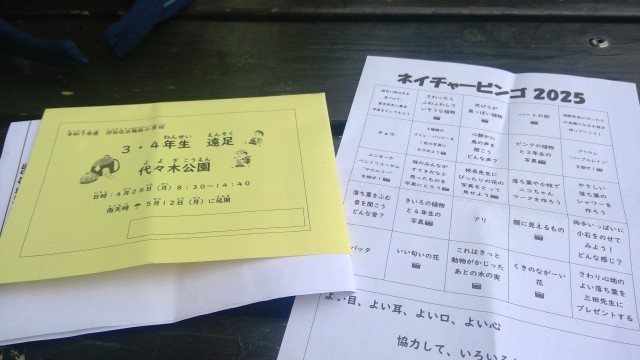 3・4年生 遠足
ねんせい えんそく
代々木公園
よよぎこうえん
日時：4月28日（月）8：30～14：40
雨天時 ☂ 5月12日（月）に延期
ネイチャービンゴ 2025
さわったら
ふわふわして
いそうな植物
花びらが
葉っぱい植物
ハートの形
チョウ
心静かに
鳥の声を
聞こう
どんな声？
ピンクの植物
と3年生の
写真
校長先生に
ぴったりの花の
写真をとって
見せよう
落ち葉や小枝で
ニコちゃん
マークを作ろう
やさしい
落ち葉の
シャワーを
作ろう
落ち葉をふむ
音を聞こう
どんな音？
きいろの植物
と4年生の
写真
アリ
顔に見えるもの
両手いっぱいに
小石をのせて
みよう！
どんな感じ？
バッタ
いい匂いの
花
これはきっと
動物がかじった
あとの木の実
くきのながーい
花
さわり心地の
よい落ち葉を
三田先生に
プレゼントする
よい目、よい耳、よい口、よい心
協力して、いろいろ